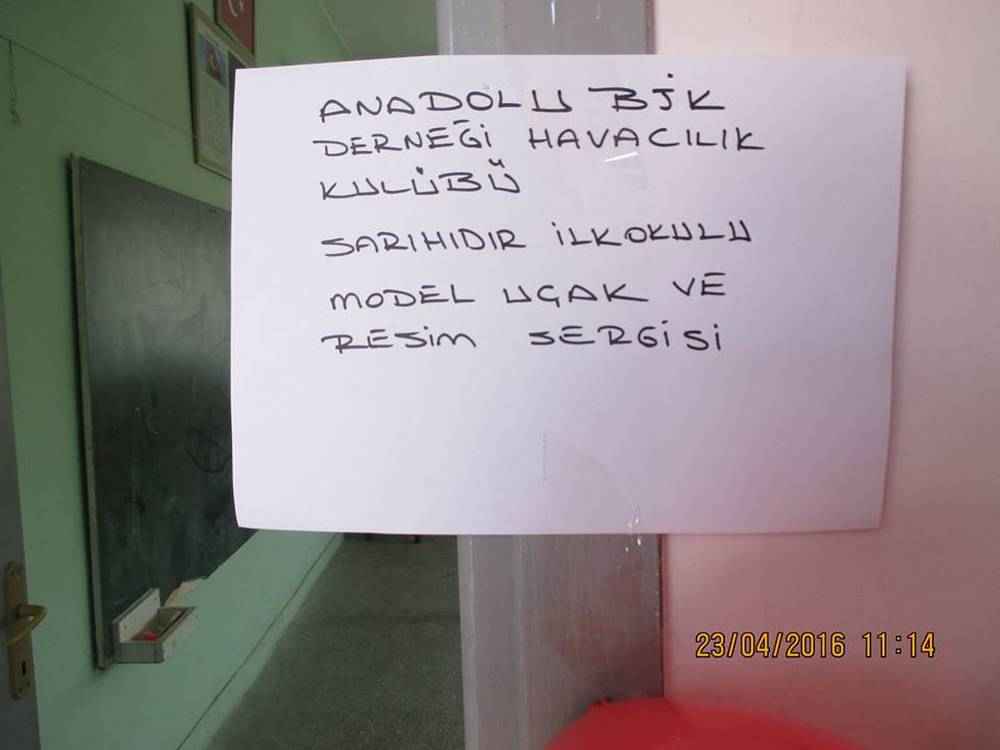 ANADOLU BJK
DERNEĞİ HAVACILIK
KULÜBÜ
SARIHIDIR İLKOKULU
MODEL UÇAK VE
RESİM SERGİSİ
23/04/2016 11:14